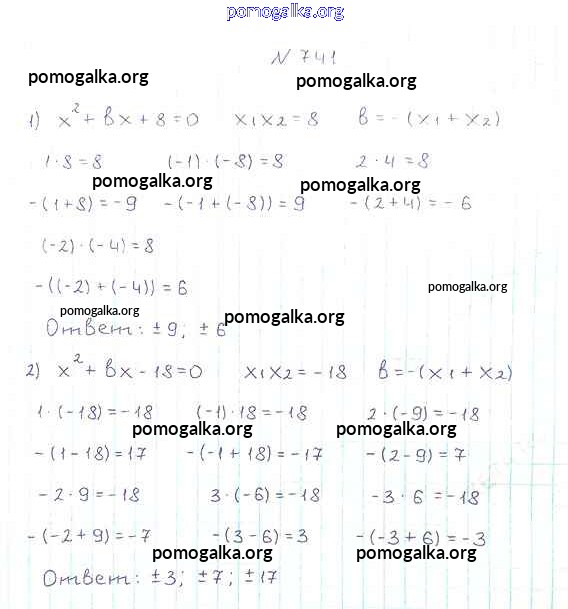 pomogalka.org
N 741
pomogalka.org pomogalka.org
1) x² + bx + 8 = 0 x₁x₂ = 8 b = -(x₁ + x₂)
1 · 8 = 8 (-1) · (-8) = 8 2 · 4 = 8
pomogalka.org pomogalka.org
-(1+8) = -9 -(-1+(-8)) = 9 -(2+4) = -6
(-2) · (-4) = 8
-((-2) + (-4)) = 6 pomogalka.org
pomogalka.org pomogalka.org
Ответ: ±9; ±6
2) x² + bx - 18 = 0 x₁x₂ = -18 b = -(x₁ + x₂)
1 · (-18) = -18 (-1) · 18 = -18 2 · (-9) = -18
pomogalka.org pomogalka.org
-(1-18) = 17 -(-1+18) = -17 -(2-9) = 7
-2 · 9 = -18 3 · (-6) = -18 -3 · 6 = -18
-(-2+9) = -7 -(3-6) = 3 -(-3+6) = -3
pomogalka.org pomogalka.org
Ответ: ±3; ±7; ±17